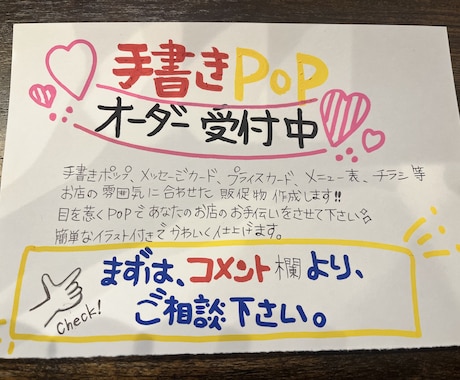 手書きPOP
オーダー受付中
手書きポップ、メッセージカード、プライスカード、メニュー表、チラシ等
お店の雰囲気に合わせた販促物作成します!!
目を惹くPOPであなたのお店のお手伝いをさせて下さい
簡単なイラスト付きでかわいく仕上げます。
まずは、コメント欄より、
ご相談下さい。
check!